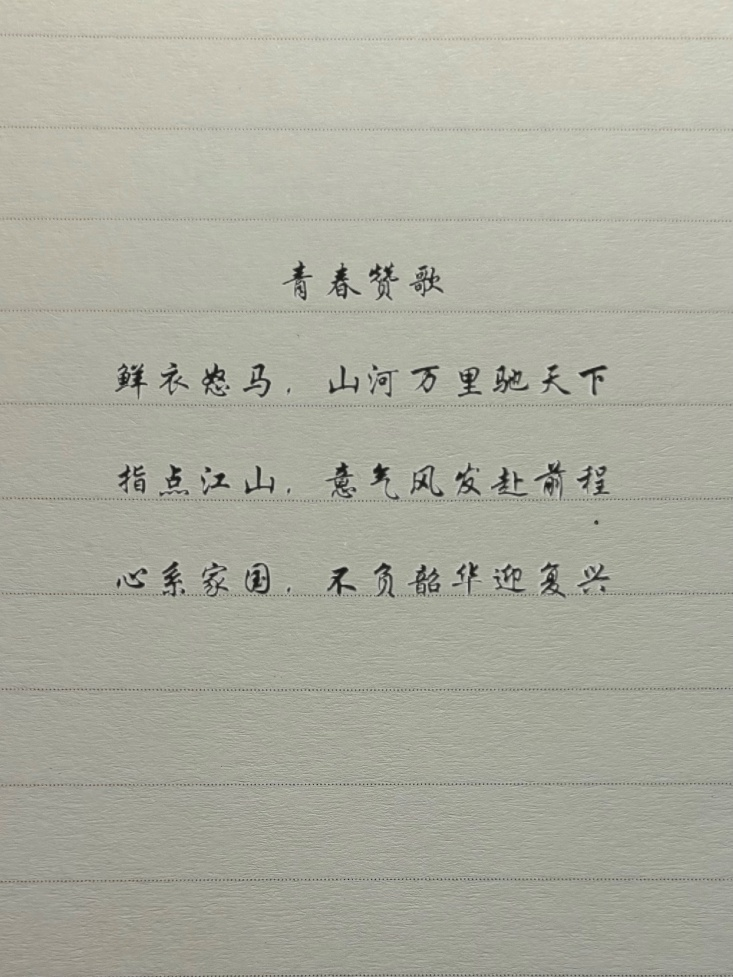 青春赞歌
鲜衣怒马，山河万里驰天下
指点江山，意气风发赴前程
心系家国，不负韶华迎复兴